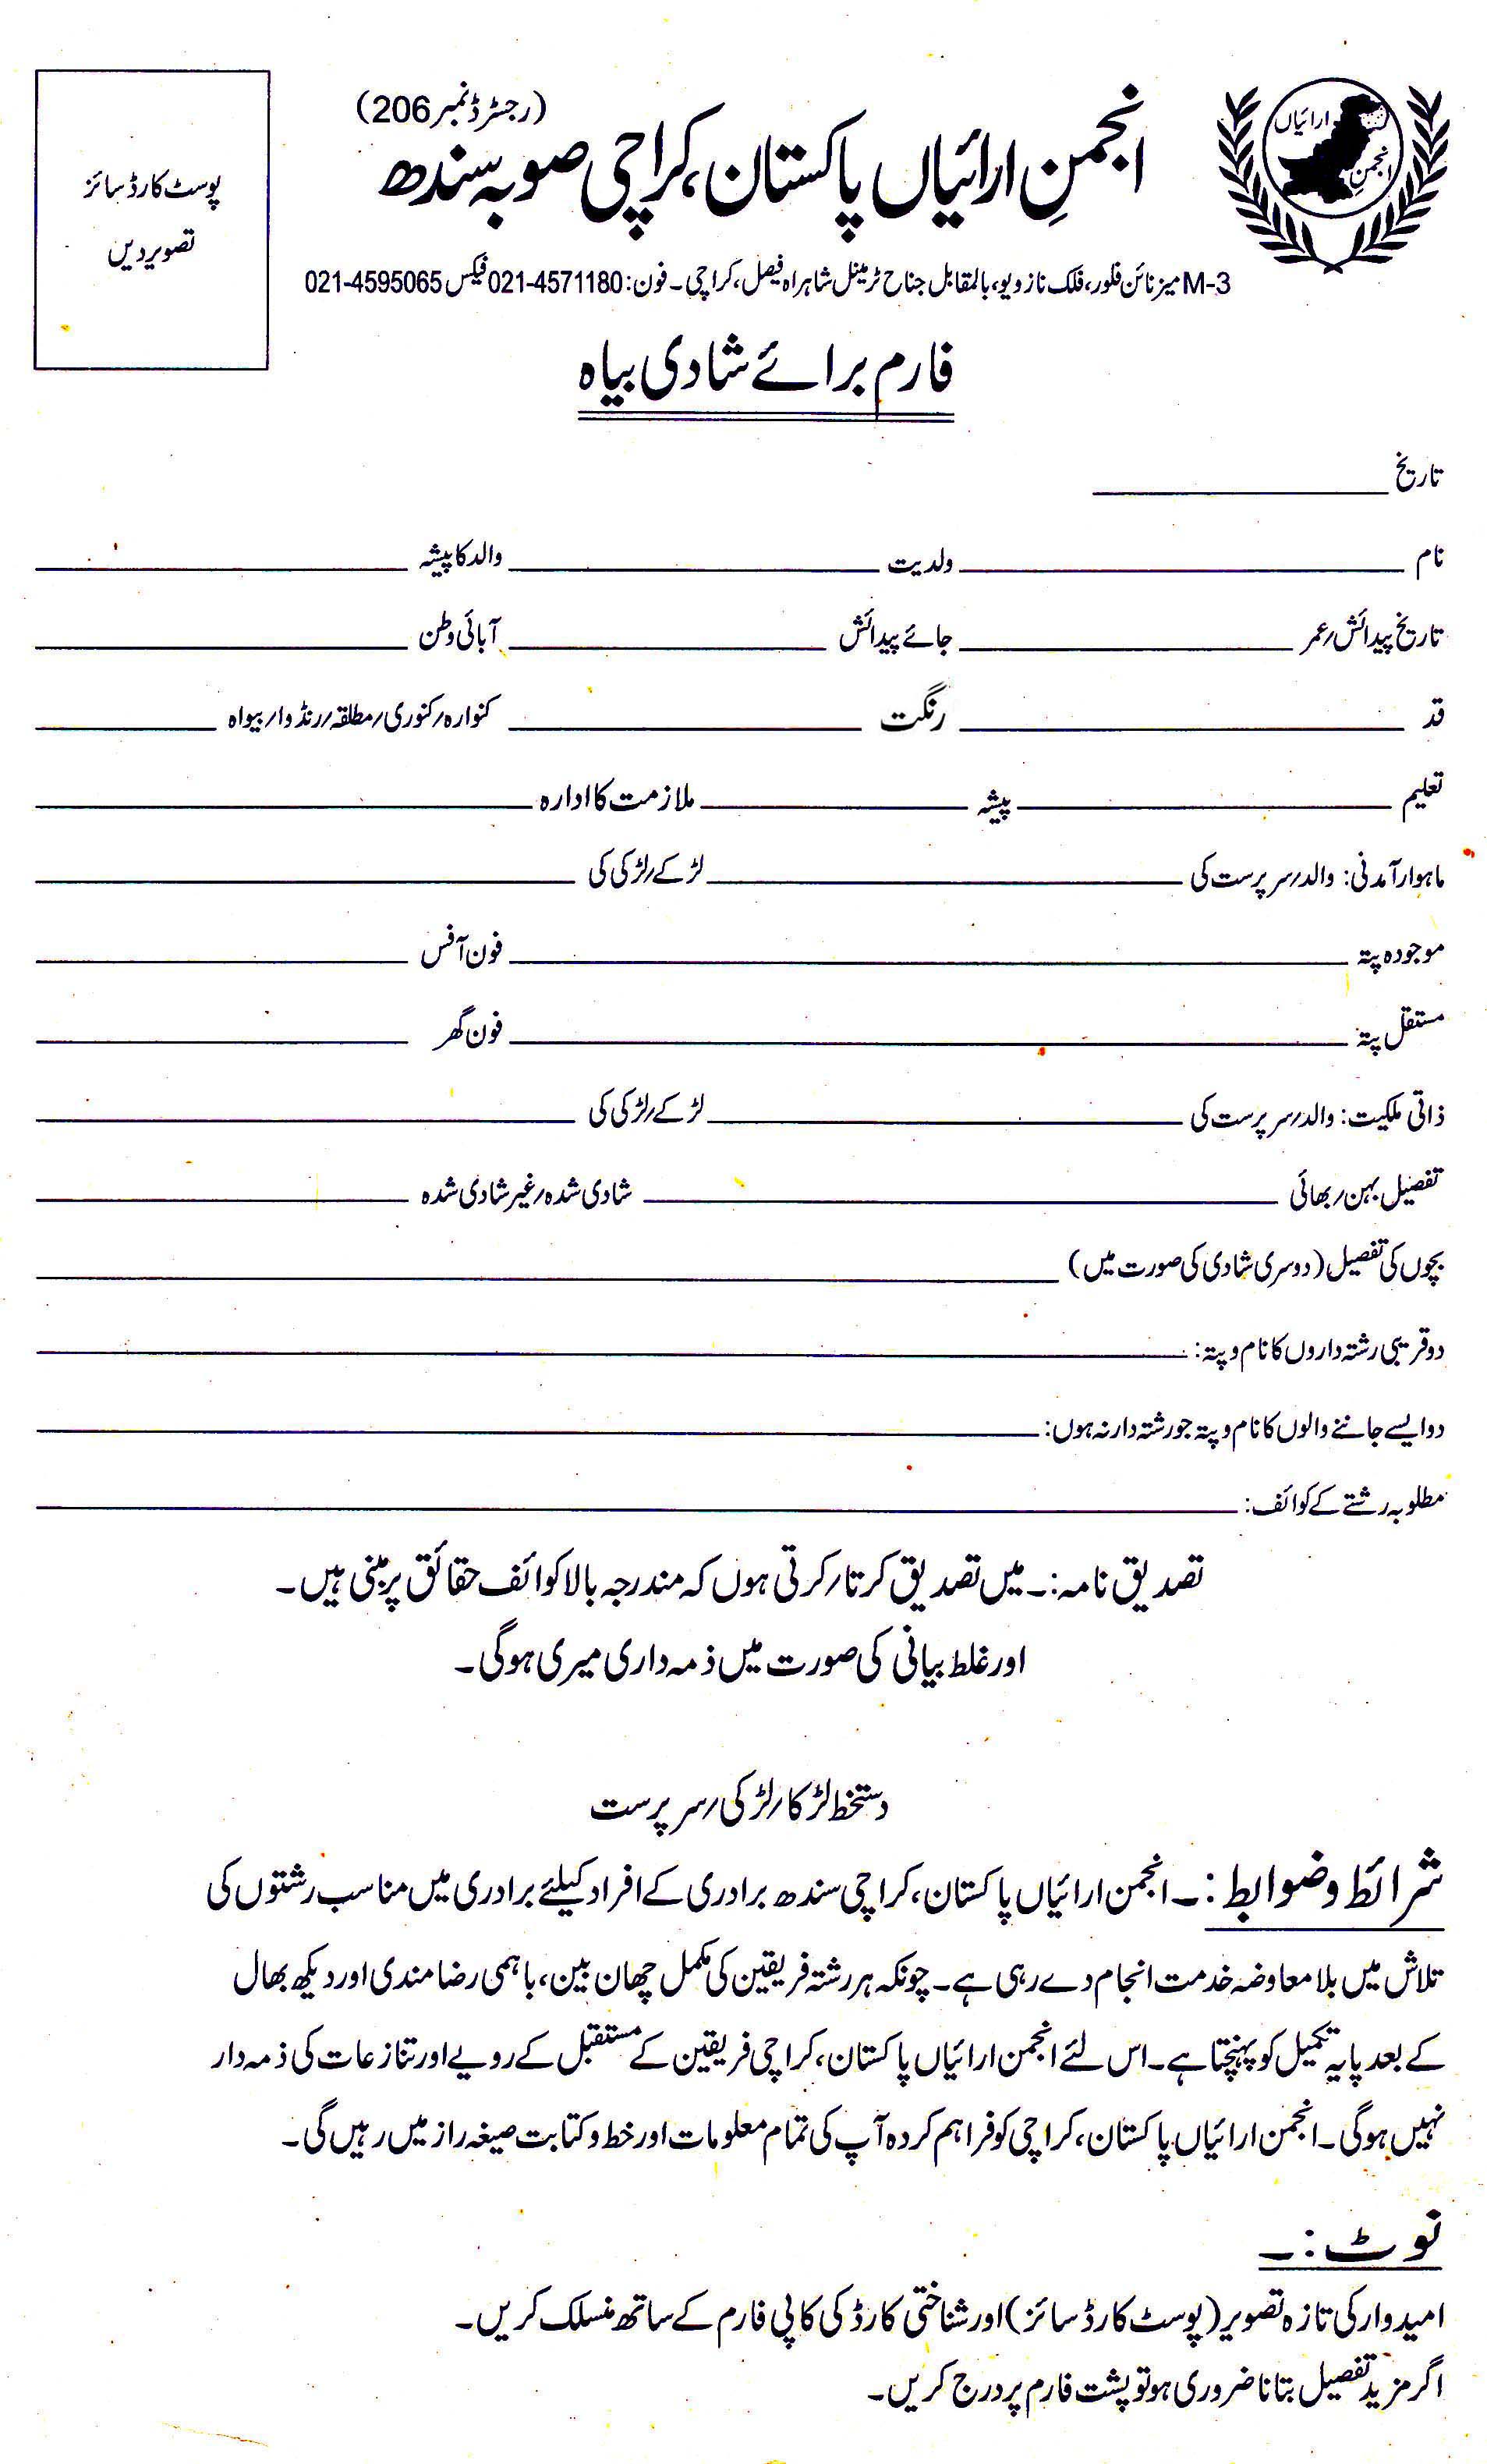 (رجسٹرڈ نمبر 206)
انجمنِ ارائیاں پاکستان، کراچی صوبہ سندھ
انجمن ارائیاں
پوسٹ کارڈ سائز
تصویر دیں
M-3 میزنائن فلور، فلک ناز ویو، بالمقابل جناح ٹرمینل شاہراہ فیصل، کراچی۔ فون: 021-4571180 فیکس 021-4595065
فارم برائے شادی بیاہ
تاریخ
نام ولدیت والد کا پیشہ
تاریخ پیدائش/عمر جائے پیدائش آبائی وطن
قد رنگت کنوارہ/کنوری/مطلقہ/رنڈوا/بیواہ
تعلیم پیشہ ملازمت کا ادارہ
ماہوار آمدنی: والد/سرپرست کی لڑکے/لڑکی کی
موجودہ پتہ فون آفس
مستقل پتہ فون گھر
ذاتی ملکیت: والد/سرپرست کی لڑکے/لڑکی کی
تفصیل بہن/بھائی شادی شدہ/غیر شادی شدہ
بچوں کی تفصیل (دوسری شادی کی صورت میں)
دو قریبی رشتہ داروں کا نام و پتہ:
دو ایسے جاننے والوں کا نام و پتہ جو رشتہ دار نہ ہوں:
مطلوبہ رشتے کے کوائف:
تصدیق نامہ:۔ میں تصدیق کرتا/کرتی ہوں کہ مندرجہ بالا کوائف حقائق پر مبنی ہیں۔
اور غلط بیانی کی صورت میں ذمہ داری میری ہوگی۔
دستخط لڑکا/لڑکی/سرپرست
شرائط و ضوابط:۔ انجمن ارائیاں پاکستان، کراچی سندھ برادری کے افراد کیلئے برادری میں مناسب رشتوں کی
تلاش میں بلا معاوضہ خدمت انجام دے رہی ہے۔ چونکہ ہر رشتہ فریقین کی مکمل چھان بین، باہمی رضامندی اور دیکھ بھال
کے بعد پایہ تکمیل کو پہنچتا ہے۔ اس لئے انجمن ارائیاں پاکستان، کراچی فریقین کے مستقبل کے رویے اور تنازعات کی ذمہ دار
نہیں ہوگی۔ انجمن ارائیاں پاکستان، کراچی کو فراہم کردہ آپ کی تمام معلومات اور خط و کتابت صیغہ راز میں رہیں گی۔
نوٹ:۔
امیدوار کی تازہ تصویر (پوسٹ کارڈ سائز) اور شناختی کارڈ کی کاپی فارم کے ساتھ منسلک کریں۔
اگر مزید تفصیل بتانا ضروری ہو تو پشت فارم پر درج کریں۔